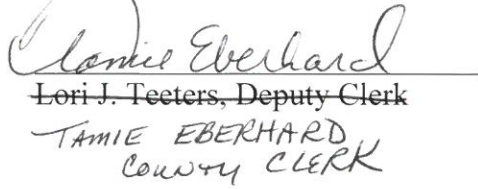 Tamie Eberhard
Lori J. Teeters, Deputy Clerk
TAMIE EBERHARD
COUNTY CLERK